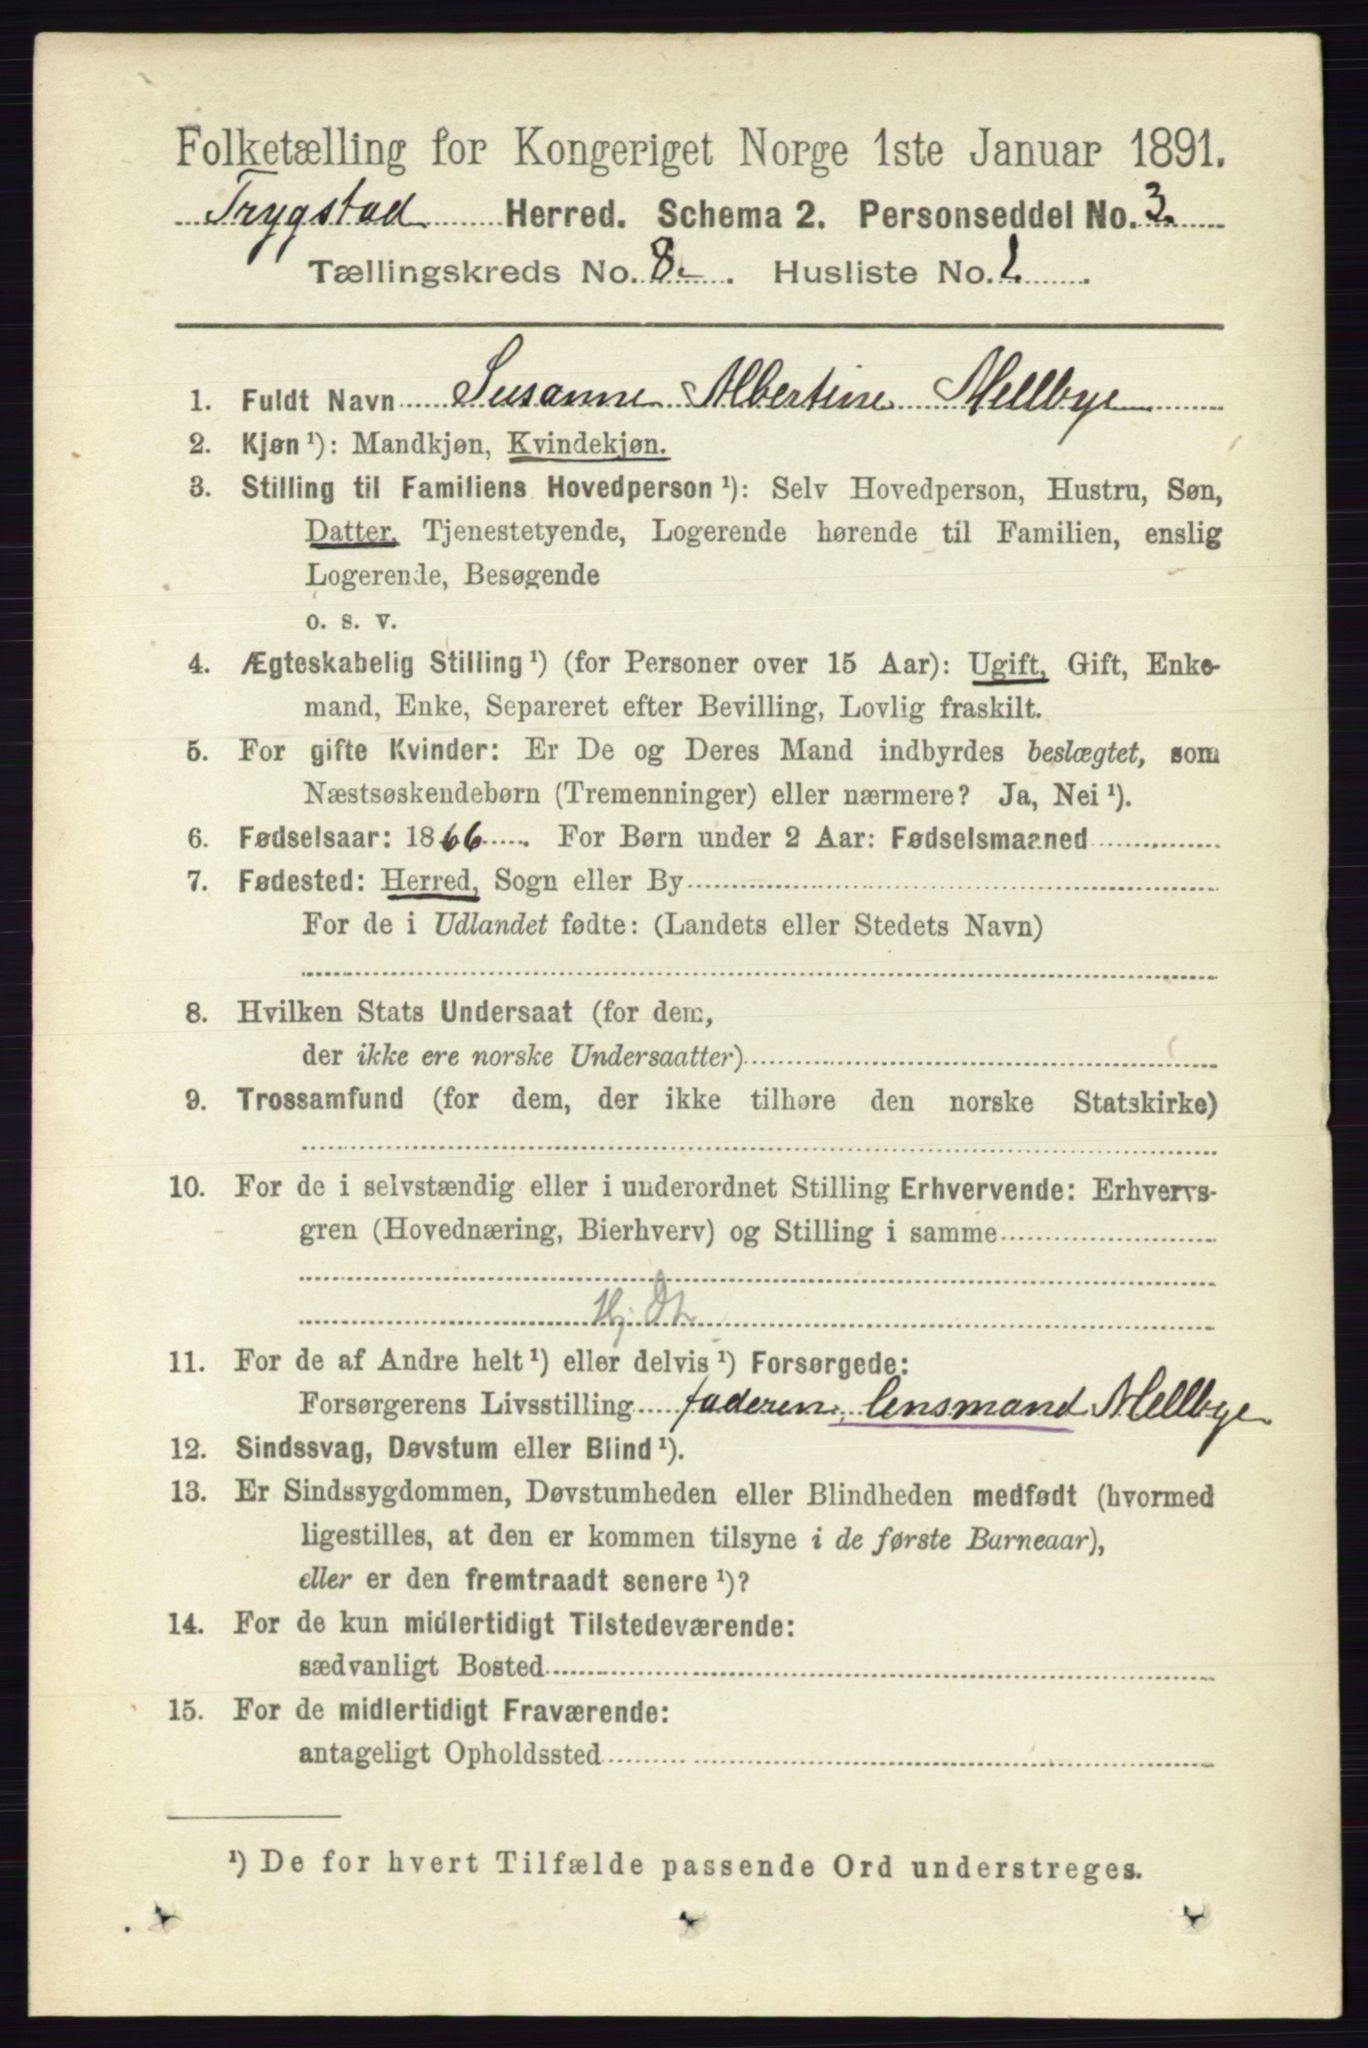 Folketælling for Kongeriget Norge 1ste Januar 1891.
Trygstad Herred. Schema 2. Personseddel No. 3.
Tællingskreds No. 8. Husliste No. 1.
1. Fuldt Navn Susanne Albertine Mellbye
2. Kjøn ¹): Mandkjøn, Kvindekjøn.
3. Stilling til Familiens Hovedperson ¹): Selv Hovedperson, Hustru, Søn,
Datter, Tjenestetyende, Logerende hørende til Familien, enslig
Logerende, Besøgende
o. s. v.
4. Ægteskabelig Stilling ¹) (for Personer over 15 Aar): Ugift, Gift, Enke-
mand, Enke, Separeret efter Bevilling, Lovlig fraskilt.
5. For gifte Kvinder: Er De og Deres Mand indbyrdes beslægtet, som
Næstsøskendebørn (Tremenninger) eller nærmere? Ja, Nei ¹).
6. Fødselsaar: 1866. For Børn under 2 Aar: Fødselsmaaned
7. Fødested: Herred, Sogn eller By
For de i Udlandet fødte: (Landets eller Stedets Navn)
8. Hvilken Stats Undersaat (for dem,
der ikke ere norske Undersaatter)
9. Trossamfund (for dem, der ikke tilhøre den norske Statskirke)
10. For de i selvstændig eller i underordnet Stilling Erhvervende: Erhvervs-
gren (Hovednæring, Bierhverv) og Stilling i samme
Hj. Dt.
11. For de af Andre helt ¹) eller delvis ¹) Forsørgede:
Forsørgerens Livsstilling faderen, lensmand Mellbye
12. Sindssvag, Døvstum eller Blind ¹).
13. Er Sindssygdommen, Døvstumheden eller Blindheden medfødt (hvormed
ligestilles, at den er kommen tilsyne i de første Barneaar),
eller er den fremtraadt senere ¹)?
14. For de kun midlertidigt Tilstedeværende:
sædvanligt Bosted
15. For de midlertidigt Fraværende:
antageligt Opholdssted
¹) De for hvert Tilfælde passende Ord understreges.